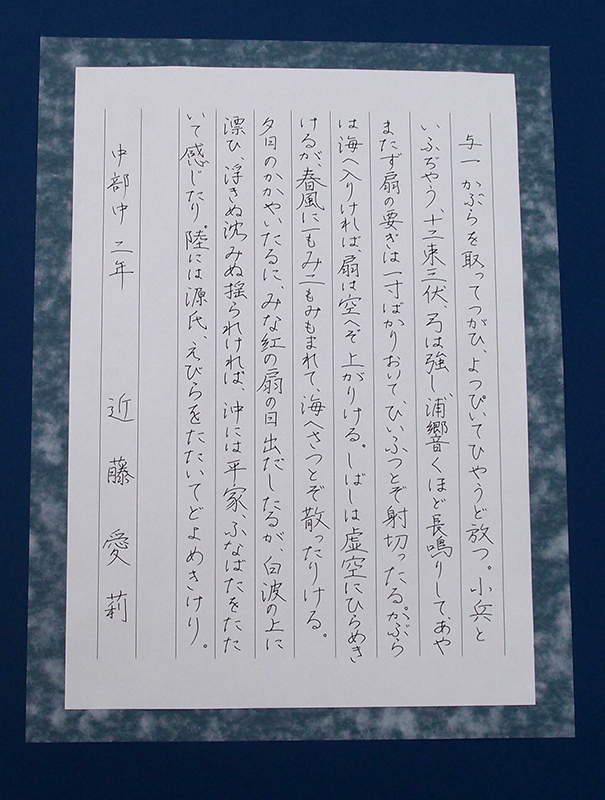 与一かぶらを取つてつがひ、よつぴいてひやうど放つ。小兵と
いふぢやう、十二束三伏、弓は強し、浦響くほど長鳴りして、あや
またず扇の要ぎは一寸ばかりおいて、ひいふつとぞ射切つたる。かぶら
は海へ入りければ、扇は空へぞ上がりける。しばしは虚空にひらめき
けるが、春風に一もみ二もみもまれて、海へさつとぞ散つたりける。
夕日のかかやいたるに、みな紅の扇の日出だしたるが、白波の上に
漂ひ、浮きぬ沈みぬ揺られければ、沖には平家、ふなばたをたた
いて感じたり。陸には源氏、えびらをたたいてどよめきけり。
中部中二年 近藤愛莉